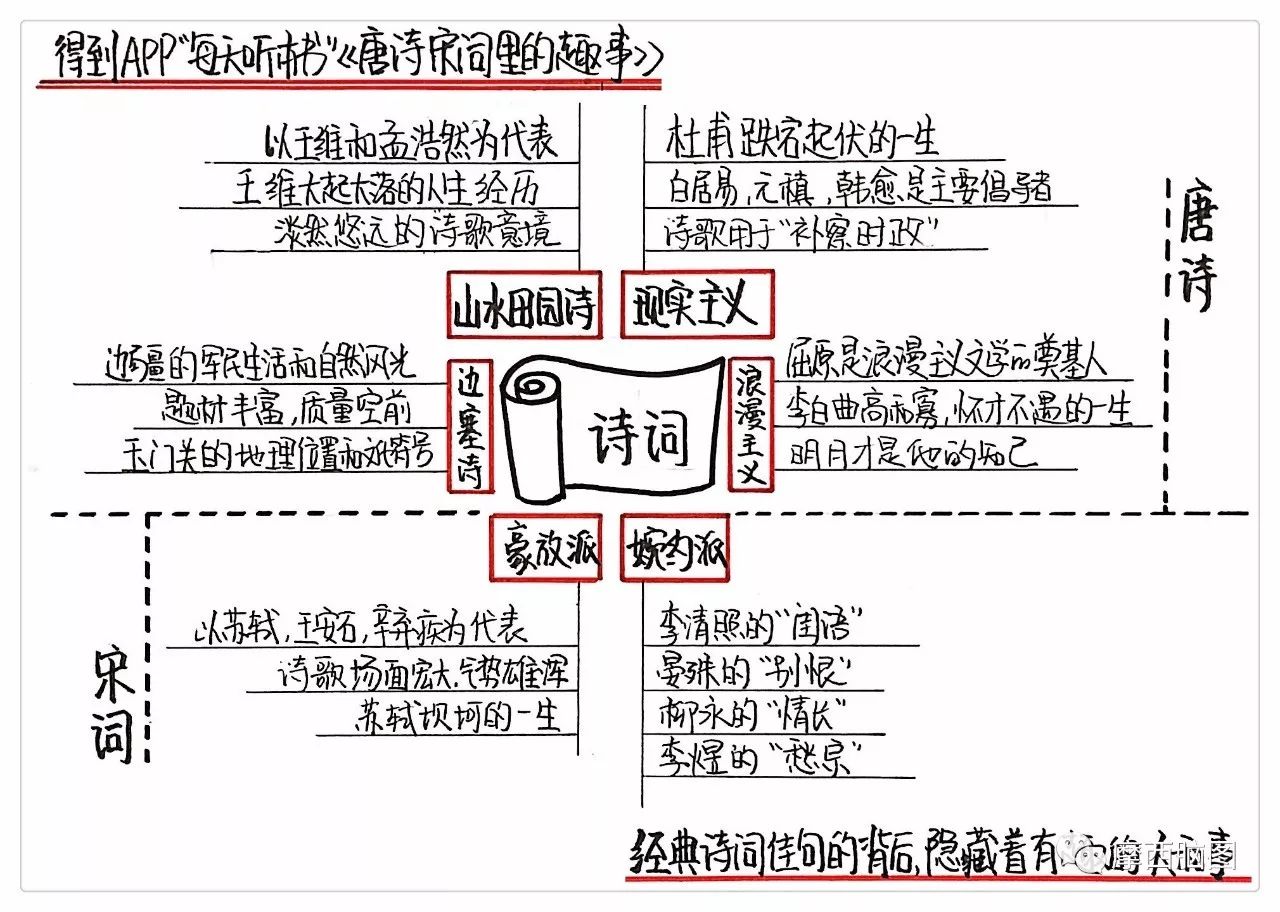 得到APP"每天听本书"《唐诗宋词里的趣事》
以王维和孟浩然为代表
王维大起大落的人生经历
淡然悠远的诗歌意境
山水田园诗
杜甫跌宕起伏的一生
白居易,元稹,韩愈是主要倡导者
诗歌用于"补察时政"
现实主义
唐诗
边疆的军民生活和自然风光
题材丰富,质量空前
玉门关的地理位置和文化符号
边塞诗
诗词
浪漫主义
屈原是浪漫主义文学的奠基人
李白曲高和寡,怀才不遇的一生
明月才是他的知己
豪放派
以苏轼,王安石,辛弃疾为代表
诗歌场面宏大,气势雄浑
苏轼坝坷的一生
宋词
婉约派
李清照的"闺语"
晏殊的"别恨"
柳永的"情长"
李煜的"愁宗"
经典诗词佳句的背后,隐藏着有
事
摩西脑图